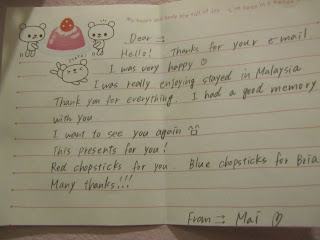 My heart and body are full of joy
Dear →
Hello! Thanks for your e-mail.
I was very happy ☺
I was really enjoying stayed in Malaysia
Thank you for everything. I had a good memory
with you
I want to see you again
This presents for you!
Red chopsticks for you. Blue chopsticks for Bria
Many thanks!!!
From → Mai ♡